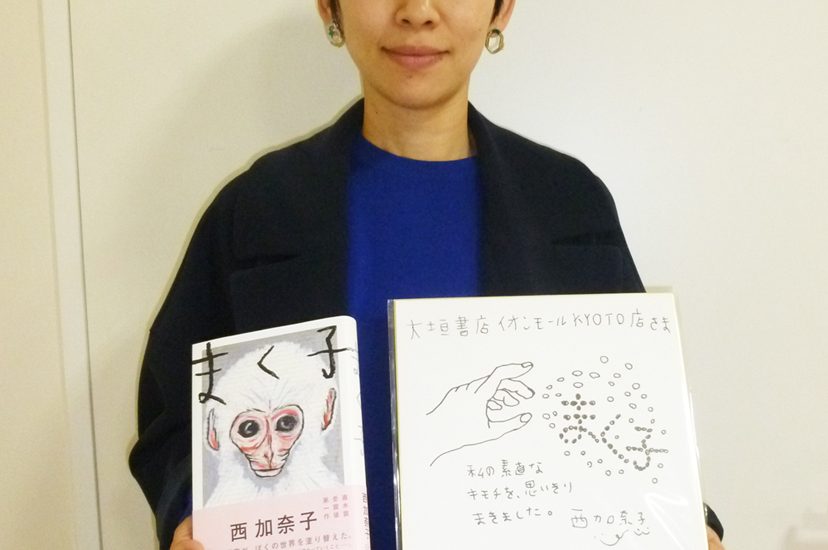 大垣書店 イオンモールKYOTO店さま
まく子
私の素直な
キモチを、思いきり
まきました。
西加奈子
まく子
西 加奈子
直木賞
受賞後
第一作
ぼくの世界を塗り替えた。
西加奈子